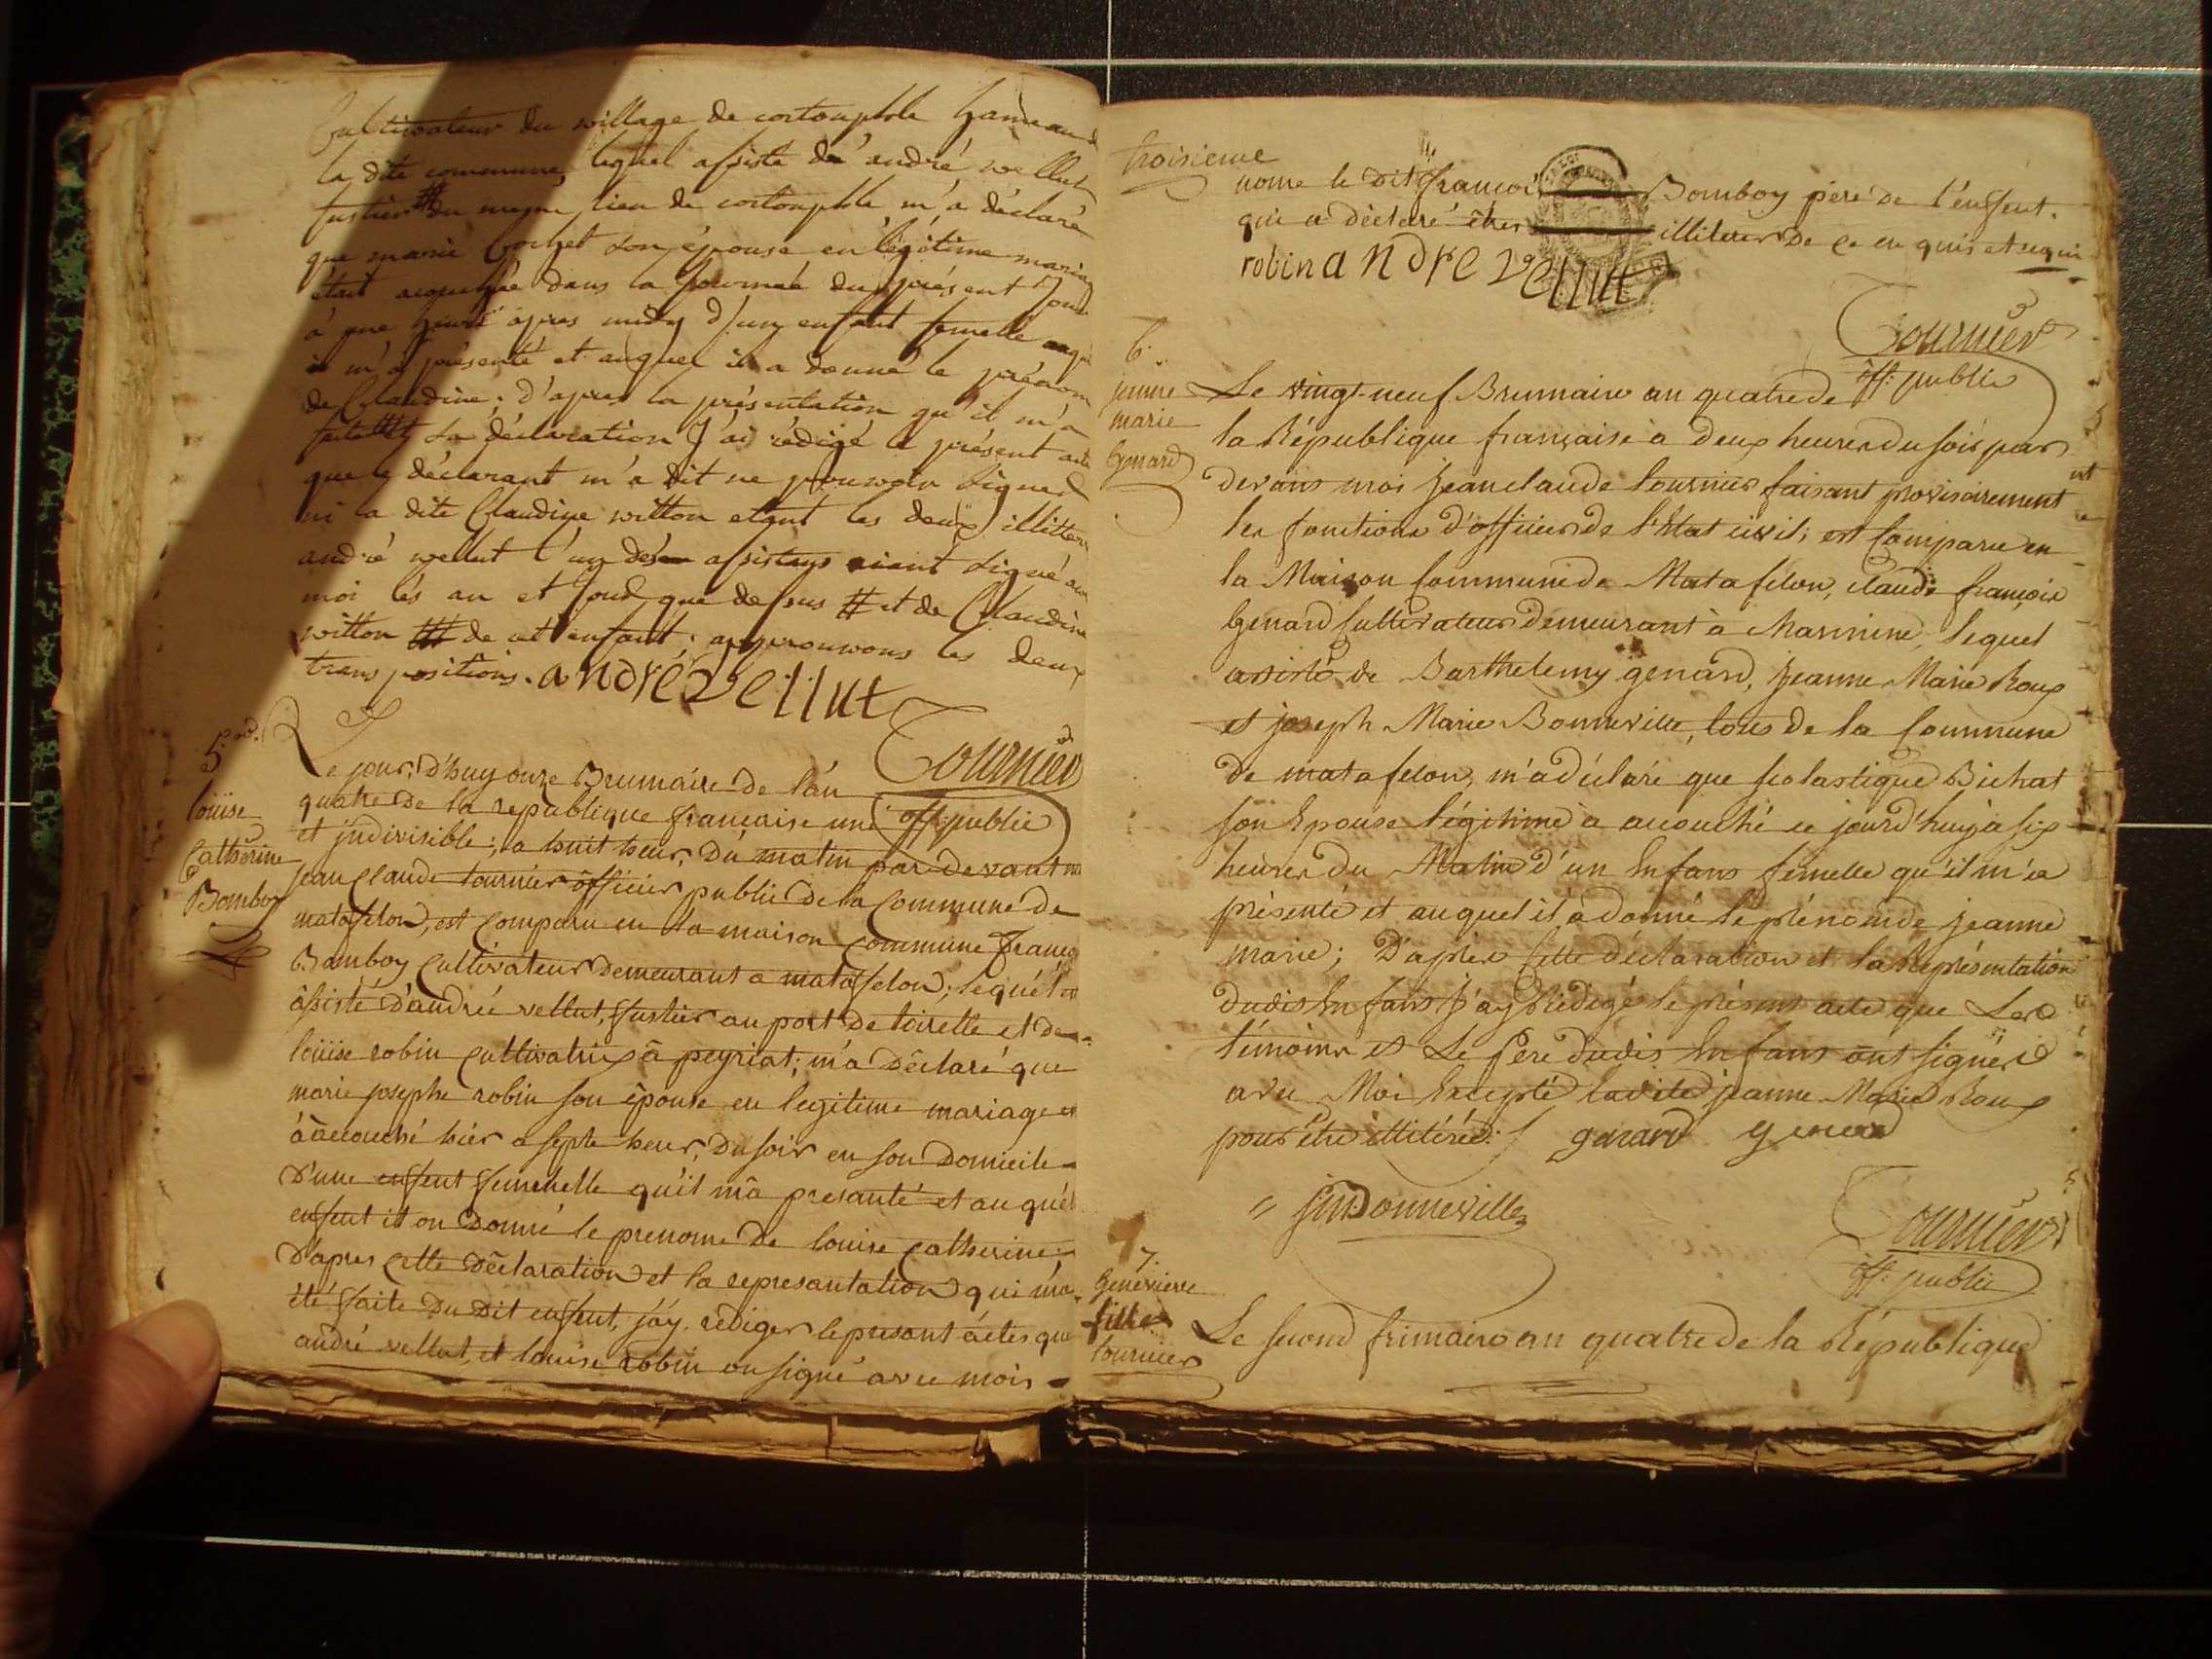 Cultivateur du village de cortouphle hameau
la dite commune, lequel assisté de andré wellut
fustier # du meme lieu de cortouphle m'a déclaré
que marie son épouse en légitime mariag
était acouchée dans la journée du présent jour
à une heure après midy d'un enfant femelle
il m'a présenté et auquel il a donné le prénom
de Claudine; d'apres la présentation qu'il m'a
faite et sa déclaration J'ai rédigé le présent acte
que le déclarant m'a dit ne pouvoir signer
ni la dite Claudine witton etant les deux illitteré
andré wellut l'un des assistans aiant signé avec
moi les an et jour que dessus # et de Claudine
witton de cet enfant; approuvons les deux
transpositions. andré vellut
Tournier
off: public
5
louise
Catherine
Bomboy
Le jour d'huy onze Brumaire de l'an
quatre de la republique francaise une
et jndivisible, a huit heur, du matin par devant
jean Claude tournier officier public de la Commune de
matafelon, est comparu en la maison commune
Bomboy Cultivateur demeurant a matafelon; lequel
assisté d'andré vellut, fustier au port de loirette et de
louise robin cultivatrix à peyriat; m'a déclaré que
marie josephe robin son épouse en legitime mariage
à accouché hier a septe heur, du soir en son domicile
d'une enfent femenelle qu'il m'à presanté et auquel
enfent it on donné le prenome de louise Catherine
d'apres cette déclaration et la represantation qui m'a
été faite du dit enfent, j'áy rediger le presant áctes que
andré vellut, et louise robin on signé avec mois
troisieme
nome le dit francoi Bomboy pere de l'enfent.
qui a déclaré étres illiterer de ce en quis et requi
robin andre vellut
Tournier
off: public
6.
jeanne
marie
Genard
Le vingt-neuf Brumaire an quatre de
la République française à deux heures du soir par
devans moi Jean claude tournier faisant provisoirement
les fonctions d'officier de l'état civil; est Comparu en
la Maison Commune de Matafelon, claude françois
Genard Cultivateur demeurant à Marinine, lequel
assisté de Barthelemy genard, Jeanne Marie Roux
et joseph Marie Bonneville, tous de la Commune
de matafelon, m'a déclaré que scolastique Bichat
son Epouse légitime à accouché ce jourd'huy à six
heures du Matin d'un Enfans femelle qu'il m'a
présenté et auquel il à donné le prénom de jeanne
marie; D'après Cette déclaration et la Représentation
dudis Enfans J'ay Rédigé le présent acte que Les
témoins et Le Pere dudis Enfans ont signé
avec Moi Excepté ladite jeanne Marie Roux
pour être illitérée. genard genard
jm Bonneville
Tournier
off: public
7.
Genevieve
fille
tournier
Le second frimaire an quatre de la République